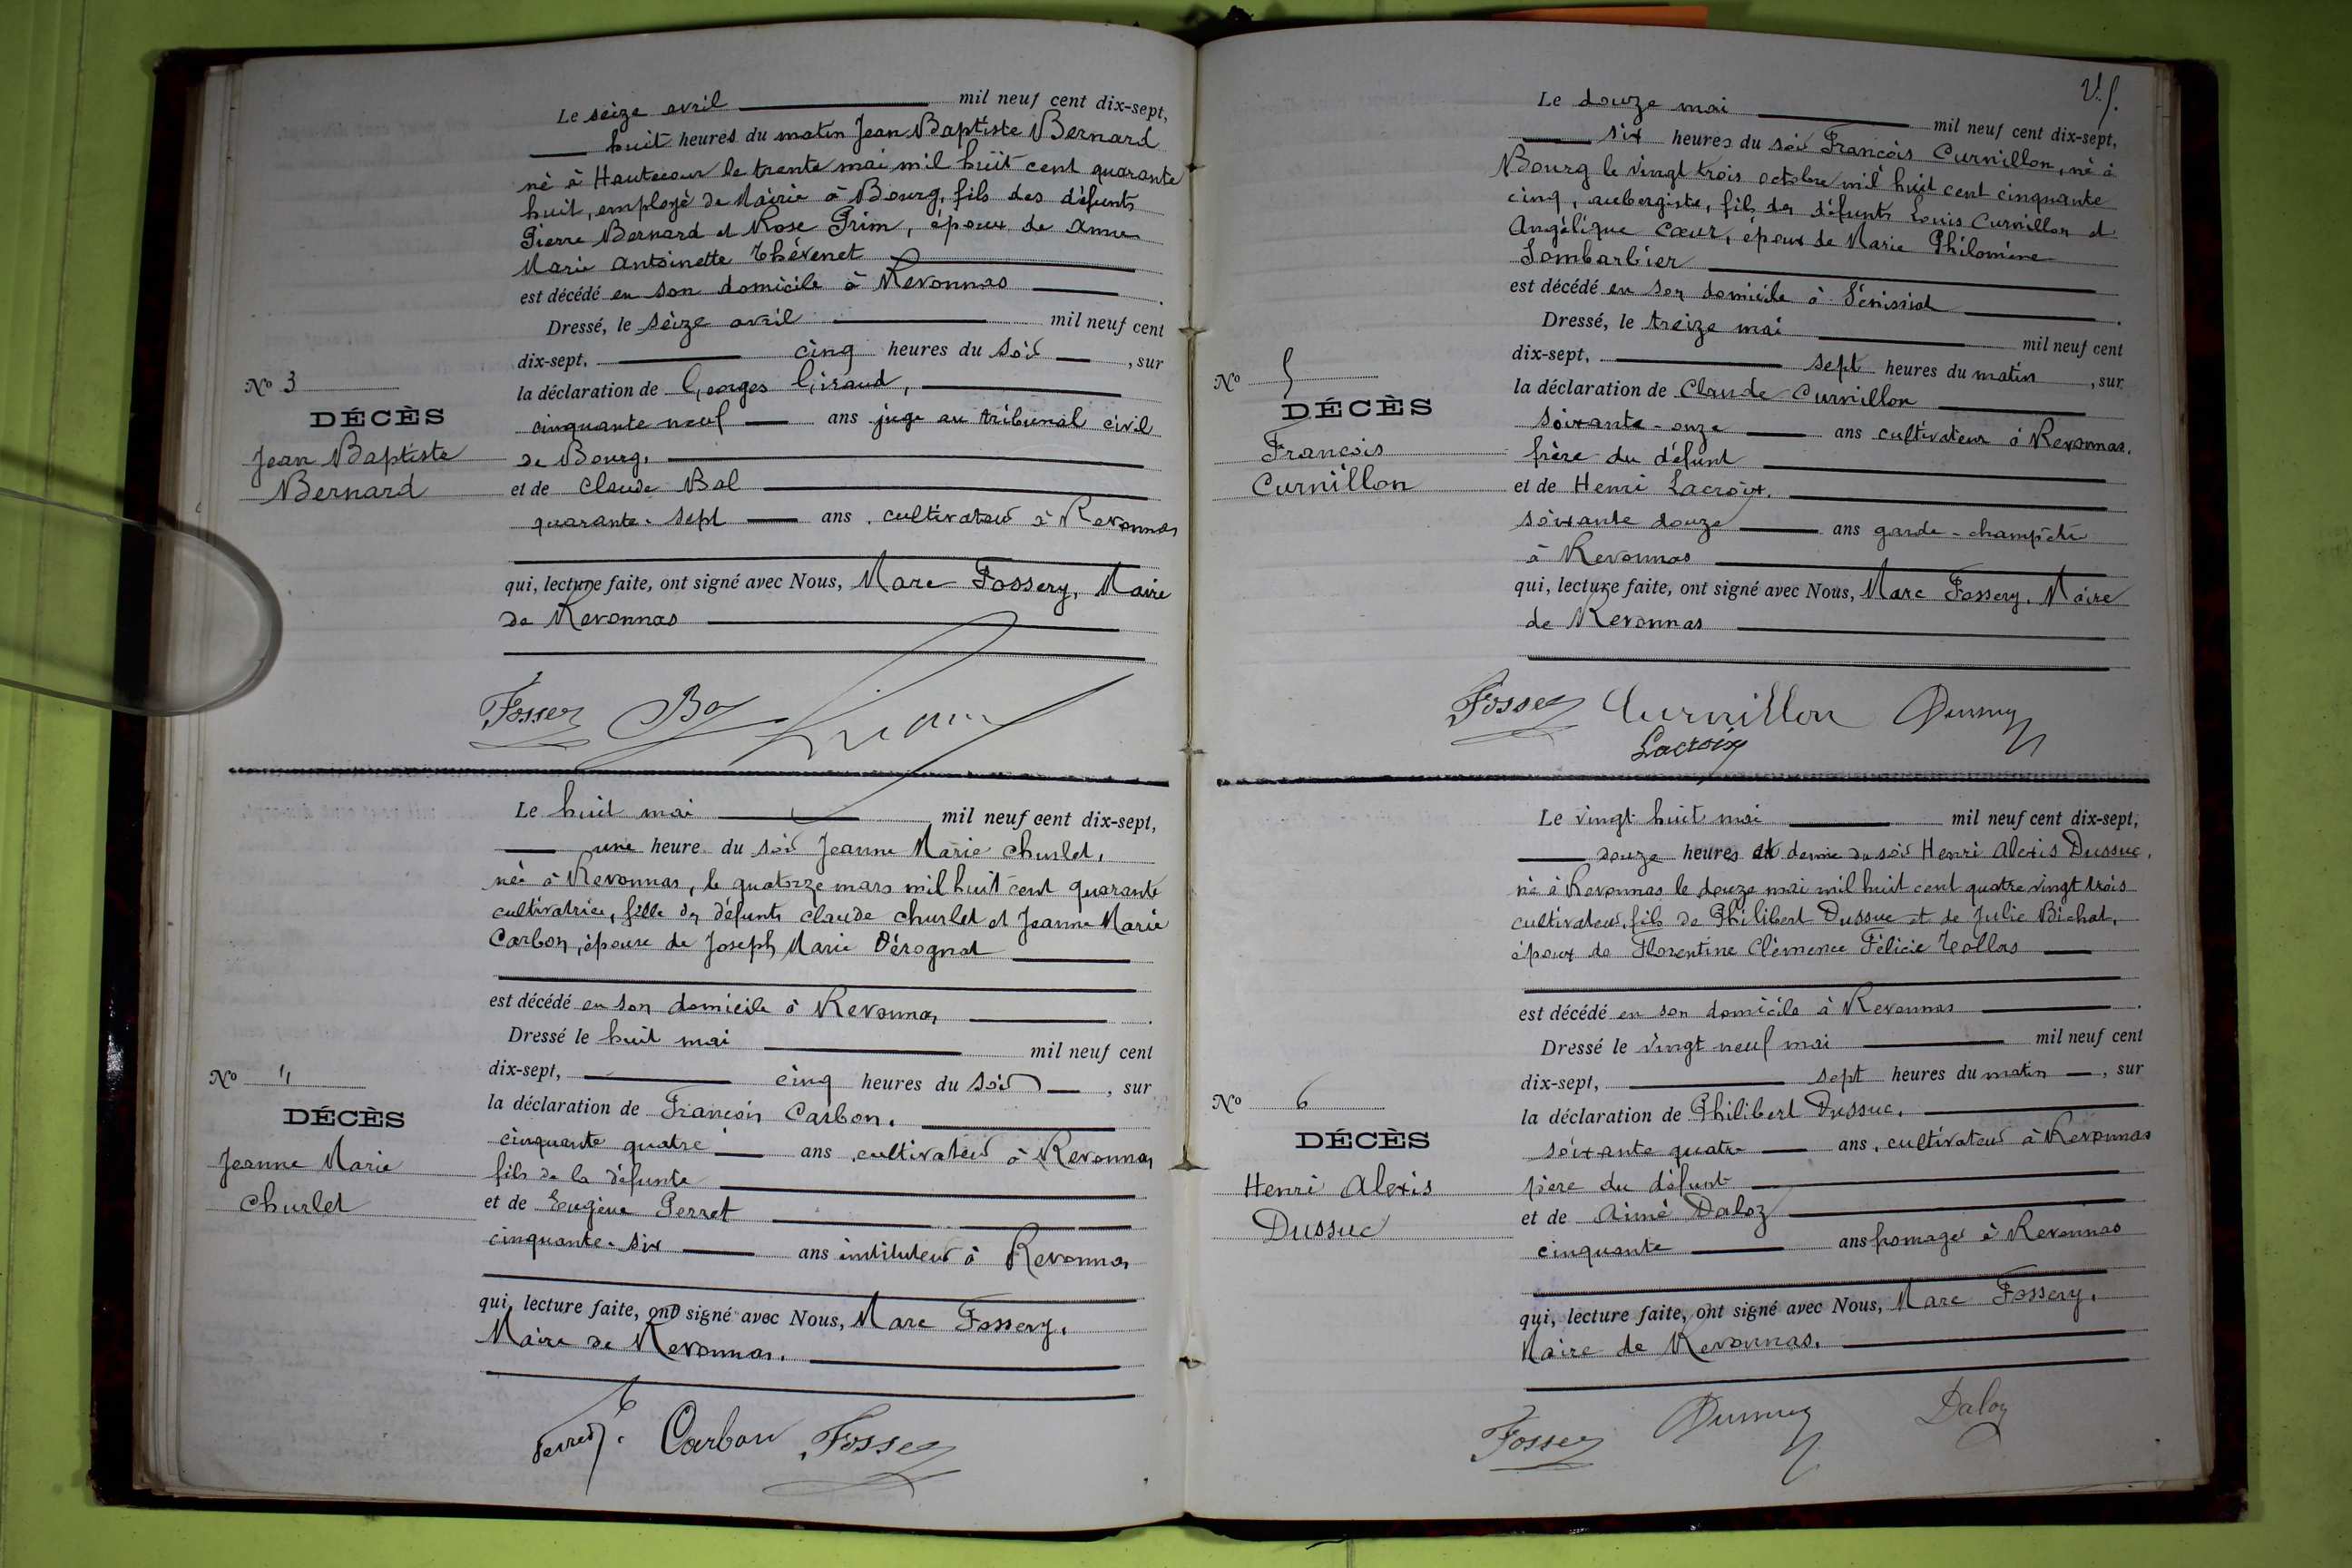 Le seize avril mil neuf cent dix-sept,
huit heures du matin Jean Baptiste Bernard
né à Hautecour le trente mai mil huit cent quarante
huit, employé de Mairie à Bourg, fils des défunts
Pierre Bernard et Rose Prim, époux de Anne
Marie Antoinette Thévenet
est décédé en son domicile à Revonnas .
Dressé, le seize avril mil neuf cent
dix-sept, cinq heures du soir , sur
la déclaration de Georges Giraud,
cinquante neuf ans juge au tribunal civil
de Bourg,
et de Claude Bal
quarante-sept ans, cultivateur à Revonnas
qui, lecture faite, ont signé avec Nous, Marc Fossery, Maire
de Revonnas
No 3
DÉCÈS
Jean Baptiste
Bernard
Le huit mai mil neuf cent dix-sept,
une heure du soir Jeanne Marie Churlet,
née à Revonnas, le quatorze mars mil huit cent quarante
cultivatrice, fille des défunts Claude Churlet et Jeanne Marie
Carbon, épouse de Joseph Marie Dérognat
est décédé en son domicile à Revonnas .
Dressé le huit mai mil neuf cent
dix-sept, cinq heures du soir , sur
la déclaration de François Carbon,
cinquante quatre ans, cultivateur à Revonnas
fils de la défunte
et de Eugène Perret
cinquante-six ans instituteur à Revonnas
qui, lecture faite, ont signé avec Nous, Marc Fossery,
Maire de Revonnas.
Perret. Carbon Fossery
No 4
DÉCÈS
Jeanne Marie
Churlet
Le douze mai mil neuf cent dix-sept,
six heures du soir François Curnillon, né à
Bourg le vingt trois octobre mil huit cent cinquante
cinq, aubergiste, fils des défunts Louis Curnillon et
Angélique Cœur, époux de Marie Philomène
Lombarbier
est décédé en son domicile à Sénissiat .
Dressé, le treize mai mil neuf cent
dix-sept, sept heures du matin , sur
la déclaration de Claude Curnillon
soixante-onze ans cultivateur à Revonnas,
frère du défunt
et de Henri Lacroix,
soixante douze ans garde-champêtre
à Revonnas
qui, lecture faite, ont signé avec Nous, Marc Fossery, Maire
de Revonnas
Fossery Curnillon
Lacroix
No 5
DÉCÈS
François
Curnillon
Le vingt huit mai mil neuf cent dix-sept,
douze heures et demie du soir Henri Alexis Dussuc,
né à Revonnas le douze mai mil huit cent quatre vingt trois
cultivateur, fils de Philibert Dussuc et de Julie Bichat,
époux de Florentine Clémence Félicie Tollas
est décédé en son domicile à Revonnas .
Dressé le vingt neuf mai mil neuf cent
dix-sept, sept heures du matin , sur
la déclaration de Philibert Dussuc,
soixante quatre ans, cultivateur à Revonnas
père du défunt
et de Aimé Daloz
cinquante ans fromager à Revonnas
qui, lecture faite, ont signé avec Nous, Marc Fossery,
Maire de Revonnas.
Fossery Dussuc Daloz
No 6
DÉCÈS
Henri Alexis
Dussuc